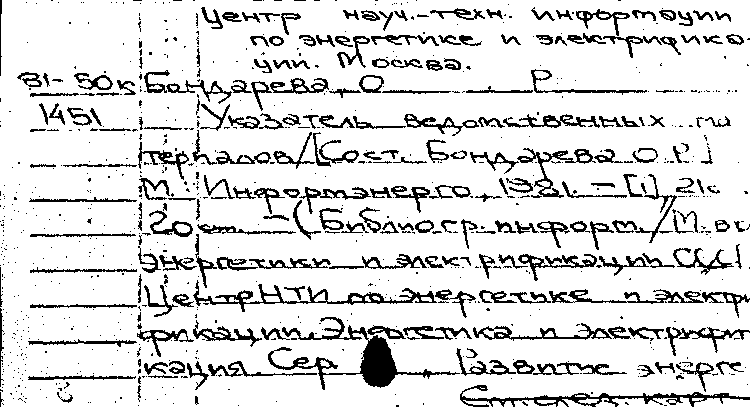 Центр науч.-техн. информации
по энергетике и электрифика-
ции. Москва.
81-50к Бондарева, О Р
1451 Указатель ведомственных ма
териалов/[Сост. Бондарева О.Р.]
М.: Информэнерго, 1981. – [1], 21с.
20 см. – (Библиогр. информ. / М-во
энергетики и электрификации СССР
ЦентрНТИ по энергетике и электри
фикации. Энергетика и электрифи
кация. Сер , Развитие энерге
См. след. карт